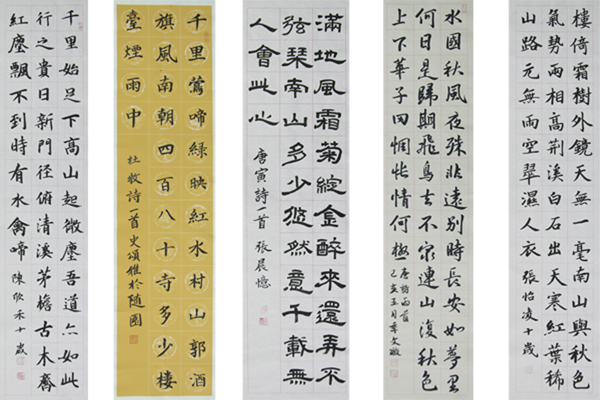 樓倚霜樹外鏡天無一毫南山與秋色
氣勢兩相高荆溪白石出天寒紅葉稀
山路元無雨空翠濕人衣 張怡凌十歲
水國秋風夜殊非遠別時長安如夢里
何日是歸期飛鳥去不窮連山復秋色
上下華子岡惆悵情何極 唐詩兩首
己亥五月
滿地風霜菊綻金醉來還弄不
弦琴南山多少悠然意千載無
人會此心 唐寅詩一首 張晨憶
千里鶯啼綠映紅水村山郭酒
旗風南朝四百八十寺多少樓
臺煙雨中 杜牧詩一首史頌雅於隨園
千里始足下高山起微塵吾道亦如此
行之貴日新門徑俯清溪茅檐古木齊
紅塵飄不到時有水禽啼 陳欣禾十歲